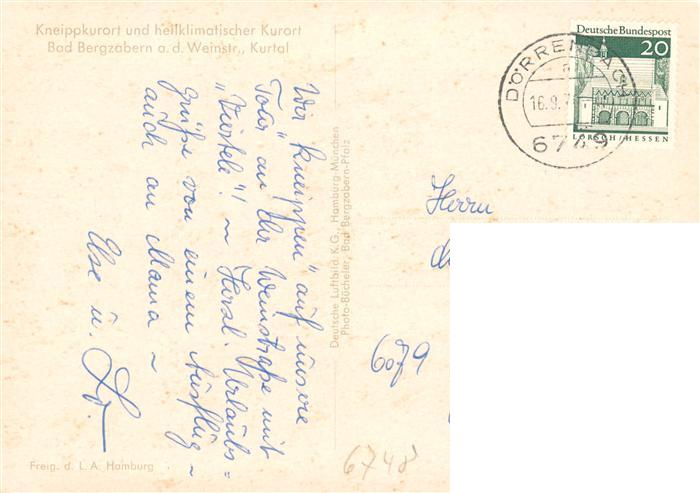 Kneippkurort und heilklimatischer Kurort
Bad Bergzabern a. d. Weinstr., Kurtal
Wir "kneippen" auf unsere
Tour an der Weinstraße mit
"Viertele"! ~ Herzl. Urlaubs=
grüße von einem Ausflug ~
auch an Mama ~
Else u.
Freig. d. L. A. Hamburg
Deutsche Luftbild K.G., Hamburg München
Photo-Bücheler, Bad Bergzabern-Pfalz
Deutsche Bundespost
20
LORSCH/HESSEN
DÖRRENBACH
16.9.7
6749
Herrn
6079
6748